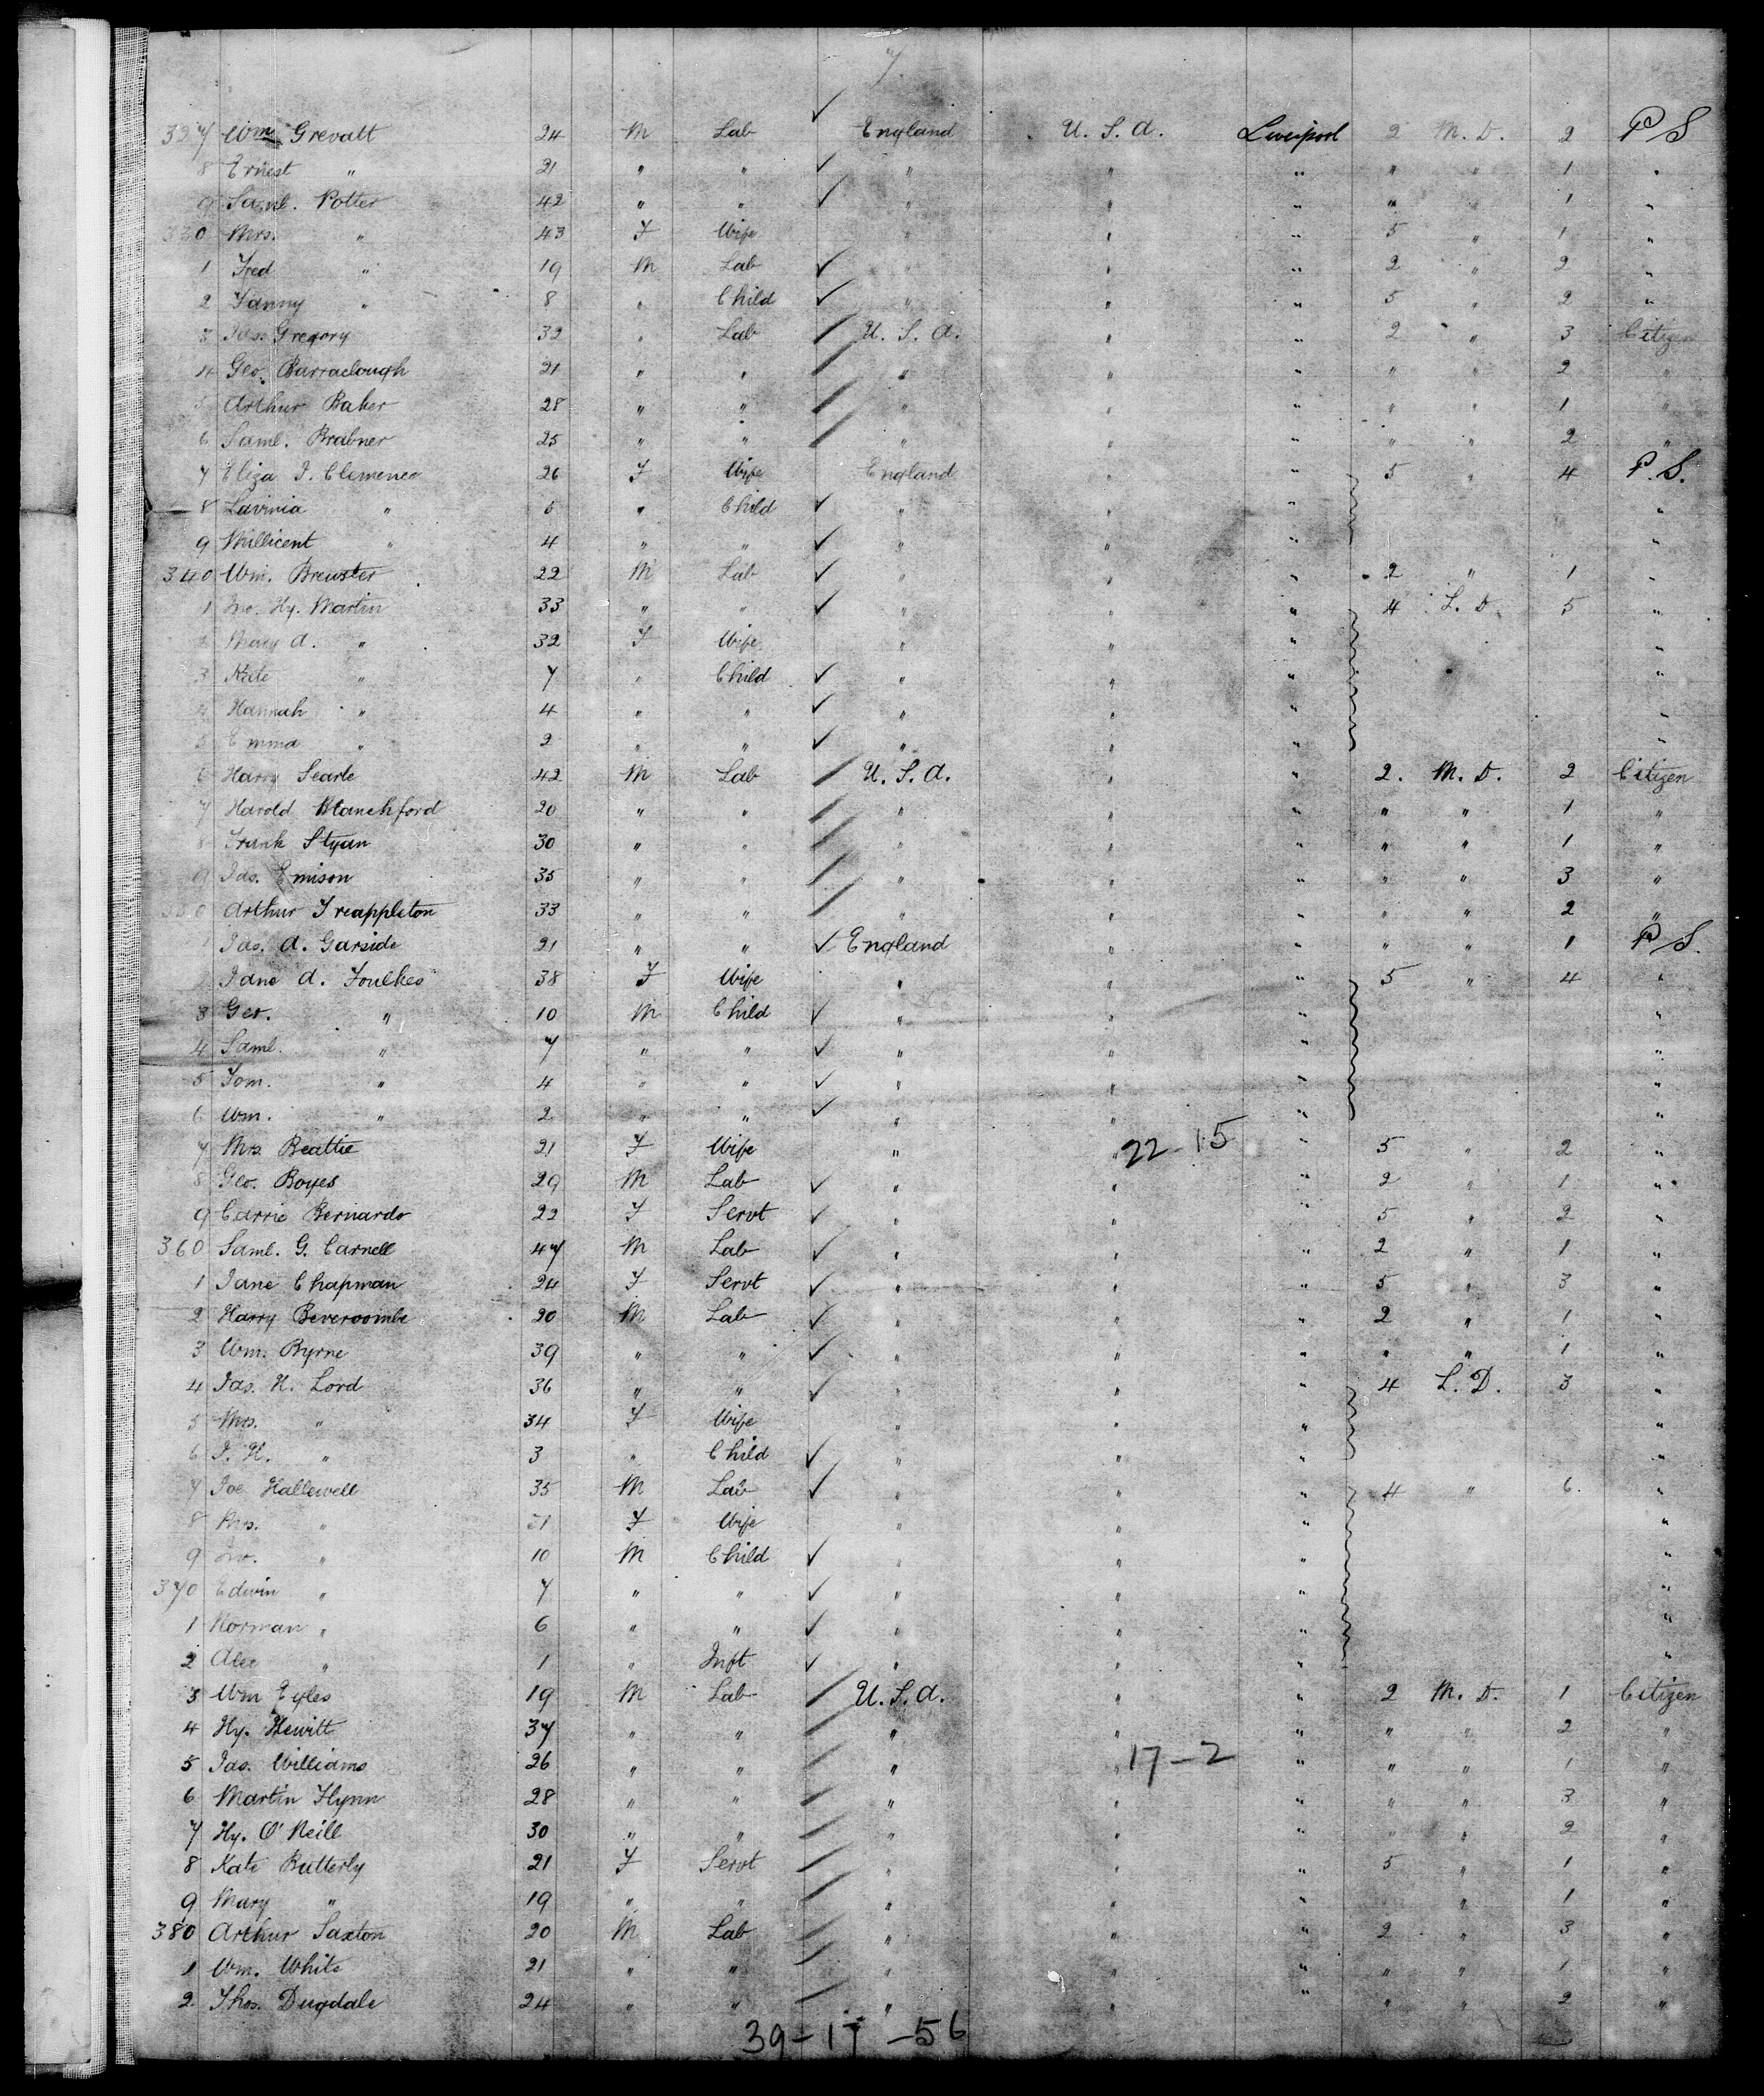 7
327 Wm Grevatt 24 M Lab ✓ England U.S.A. Liverpool 2 M.D. 2 P S
8 Ernest " 21 " " ✓ " " " " " 1 "
9 Saml. Potter 42 " " ✓ " " " " " 1 "
330 Mrs. " 43 F Wife " " " 5 " 1 "
1 Fred " 19 M Lab ✓ " " " 2 " 2 "
2 Fanny " 8 " Child ✓ " " " 5 " 2 "
3 Jas. Gregory 32 " Lab / U.S.A. " " 2 " 3 Citizen
4 Geo. Barraclough 21 " " / " " " " " 2 "
5 Arthur Baker 28 " " / " " " " " 1 "
6 Saml. Brabner 25 " " / " " " " " 2 "
7 Eliza J. Clemence 26 F Wife England " " 5 " 4 P.S.
8 Lavinia " 5 " Child ✓ " " " "
9 Millicent " 4 " " ✓ " " " "
340 Wm. Brewster 22 M Lab ✓ " " " 2 " 1 "
1 Jno. Hy. Martin 33 " " ✓ " " " 4 L.D. 5 "
2 Mary A. " 32 F Wife " " " "
3 Kate " 7 " Child ✓ " " " "
4 Hannah " 4 " " ✓ " " " "
5 Emma " 2 " " ✓ " " " "
6 Harry Searle 42 M Lab / U.S.A. " " 2. M.D. 2 Citizen
7 Harold Blanchford 20 " " / " " " " " 1 "
8 Frank Styan 30 " " / " " " " " 1 "
9 Jas. Emison 35 " " / " " " " " 3 "
350 Arthur Treappleton 33 " " / " " " " " 2 "
1 Jas. A. Garside 21 " " ✓ England " " " " 1 P S.
Jane A. Foulkes 38 F Wife " " " 5 " 4 "
3 Geo. " 10 M Child ✓ " " " "
4 Saml. " 7 " " ✓ " " " "
5 Tom. " 4 " " ✓ " " " "
6 Wm. " 2 " " ✓ " " " "
7 Mrs. Beattie 21 F Wife " 22-15 " 5 " 2 "
8 Geo. Boyes 29 M Lab ✓ " " " 2 " 1 "
9 Carrie Bernardo 22 F Servt ✓ " " " 5 " 2 "
360 Saml. G. Carnell 47 M Lab ✓ " " " 2 " 1 "
1 Jane Chapman 24 F Servt ✓ " " " 5 " 3 "
2 Harry Bevercombe 20 M Lab ✓ " " " 2 " 1 "
3 Wm. Byrne 39 " " ✓ " " " " " 1 "
4 Jas. H. Lord 36 " " ✓ " " " 4 L.D. 3 "
5 Mrs. " 34 F Wife " " " "
6 J. H. " 3 " Child ✓ " " " "
7 Joe Hallewell 35 M Lab ✓ " " " 4 " 6. "
8 Mrs. " 31 F Wife " " " "
9 Jno. " 10 M Child ✓ " " " "
370 Edwin " 7 " " ✓ " " " "
1 Norman " 6 " " ✓ " " " "
2 Alec " 1 " Inft ✓ " " " "
3 Wm Eyles 19 M Lab / U.S.A. " " 2 M.D. 1 Citizen
4 Hy. Hewitt 37 " " / " " " " " 2 "
5 Jas. Williams 26 " " / " 17-2 " " " 1 "
6 Martin Flynn 28 " " / " " " " " 3 "
7 Hy. O'Neill 30 " " / " " " " " 2 "
8 Kate Butterly 21 F Servt / " " " 5 " 1 "
9 Mary " 19 " " / " " " " 1 "
380 Arthur Saxton 20 M Lab / " " " 2 " 3 "
1 Wm. White 21 " " / " " " " " 1 "
2 Thos. Dugdale 24 " " / " " " " " 2 "
39-17-56